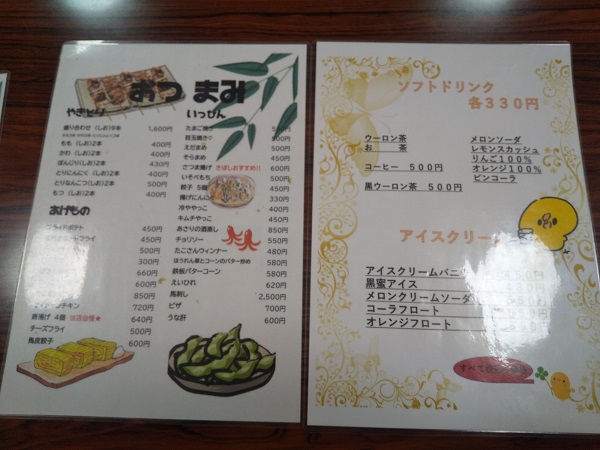 おつまみ
やきとり
盛り合わせ(しお)9本 1,600円
もも(しお)2本 400円
かわ(しお)2本 400円
ぼんじり(しお)2本 440円
とりにんにく(しお)2本 400円
とりなんこつ(しお)2本 500円
もつ(しお)2本 400円
あげもの
フライドポテト 450円
450円
500円
300円
660円
600円
850円
チキン 720円
唐揚げ 4個 当店自慢★ 640円
チーズフライ 500円
鳥皮餃子 600円
いっぴん
たまご焼き
目玉焼き
えだまめ
そらまめ
さつま揚げ さぼしおすすめ!!
いそべもち
餃子 5個
揚げにんにく
冷ややっこ 400円
キムチやっこ
あさりの酒蒸し 850円
チョリソー 550円
たこさんウィンナー 480円
ほうれん草とコーンのバター炒め 580円
鉄板バターコーン 580円
えいひれ 620円
馬刺し 2,500円
ピザ 700円
うな肝 600円
ソフトドリンク
各330円
ウーロン茶
お 茶
コーヒー 500円
黒ウーロン茶 500円
メロンソーダ
レモンスカッシュ
りんご100%
オレンジ100%
ビンコーラ
アイスクリーム
アイスクリームバニラ
黒蜜アイス
メロンクリームソーダ
コーラフロート
オレンジフロート
すべて